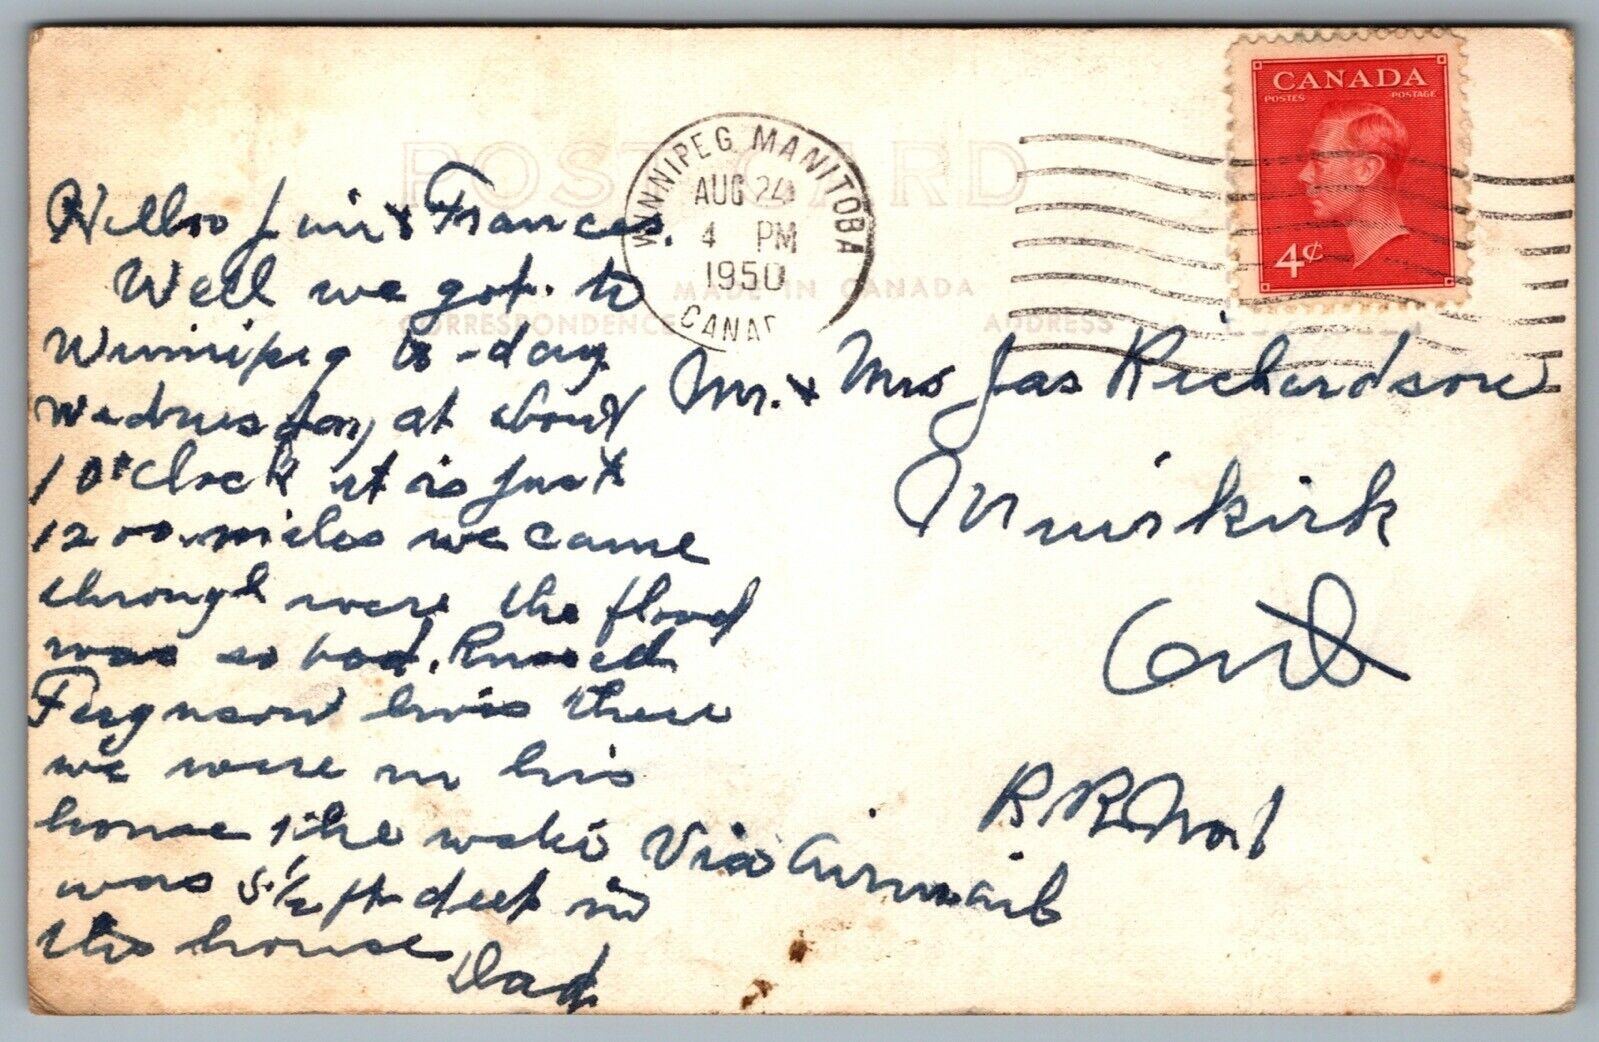 POST CARD
WINNIPEG MANITOBA
AUG 24
4 PM
1950
CANAD
CANADA
POSTES POSTAGE
4¢
MADE IN CANADA
CORRESPONDENCE
ADDRESS
Hellow Jim & Frances.
Well we got to
Winnipeg to-day
Wednesday at about
10 Clock it is just
1200 miles we came
through were the flood
was so bad. Russed
Ferguson livis there
we were in his
house the water
was 5 1/2 ft deep in
this house
Dad
Mr. & Mrs Jas Richardson
Muirkirk
Ont
R R No 1
Via Airmail